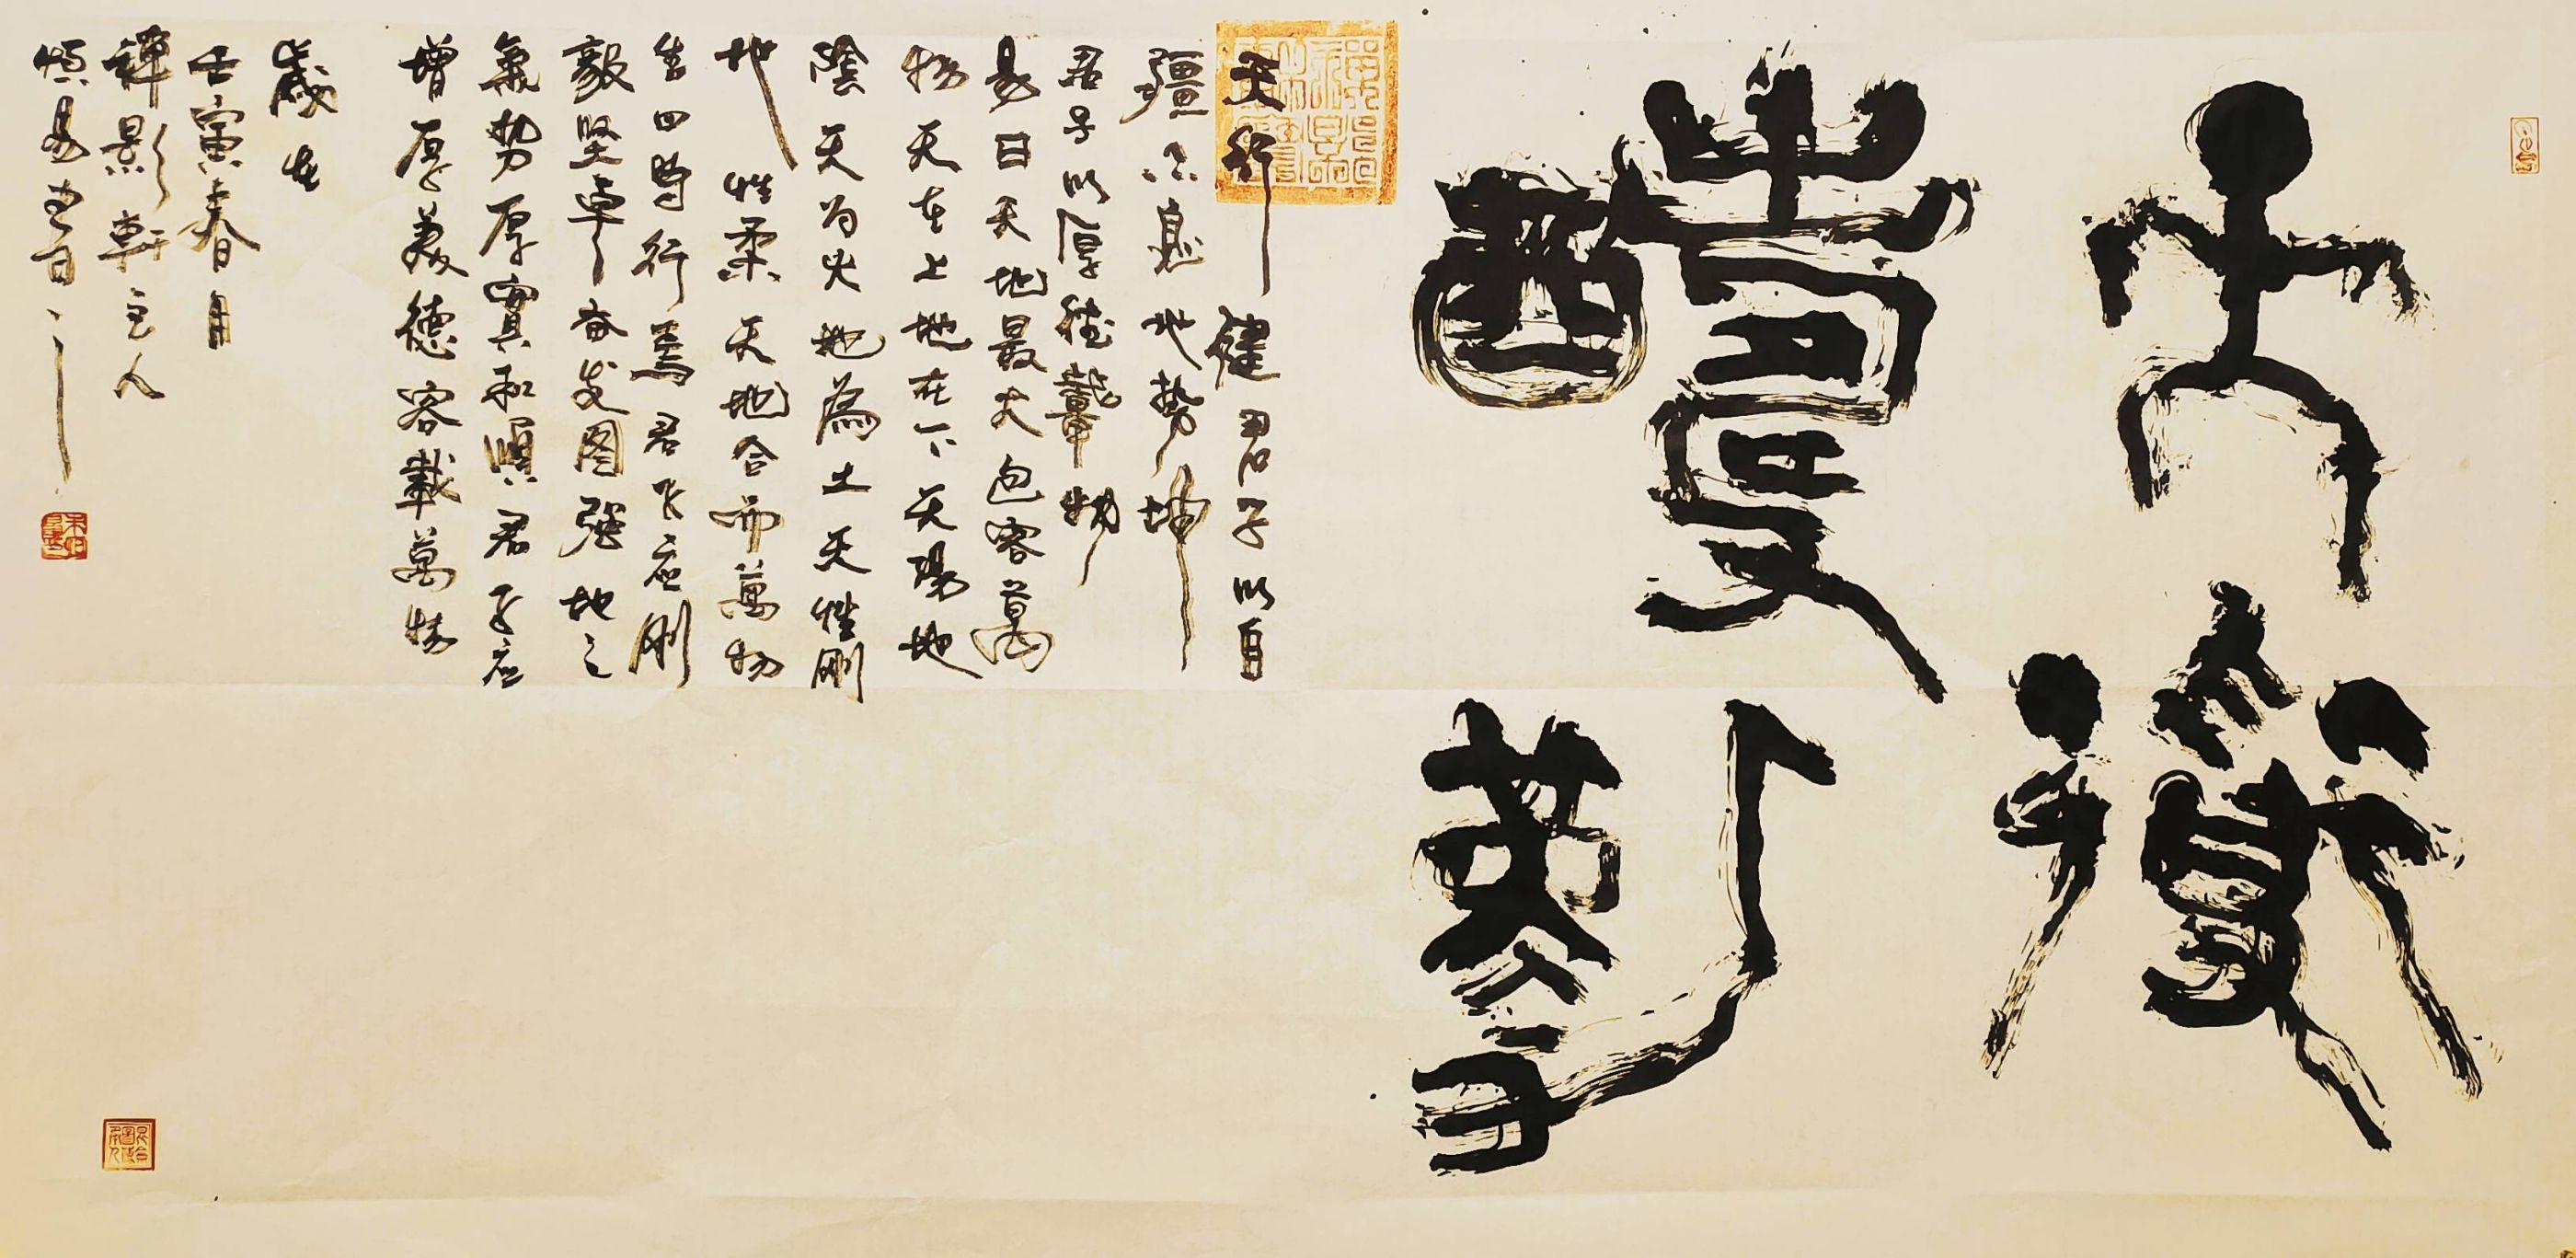 天
道
酬
勤
天行健君子以自
疆不息地勢坤
君子以厚德載物
易曰天地最大包容萬
物天在上地在下天陽地
陰天为火地為土天性剛
地性柔天地合而萬物
生四時行焉君子应刚
毅坚卓奋发图强地之
氣势厚實和順君子应
增厚美德容載萬物
歲在
壬寅春月
禪影軒主人